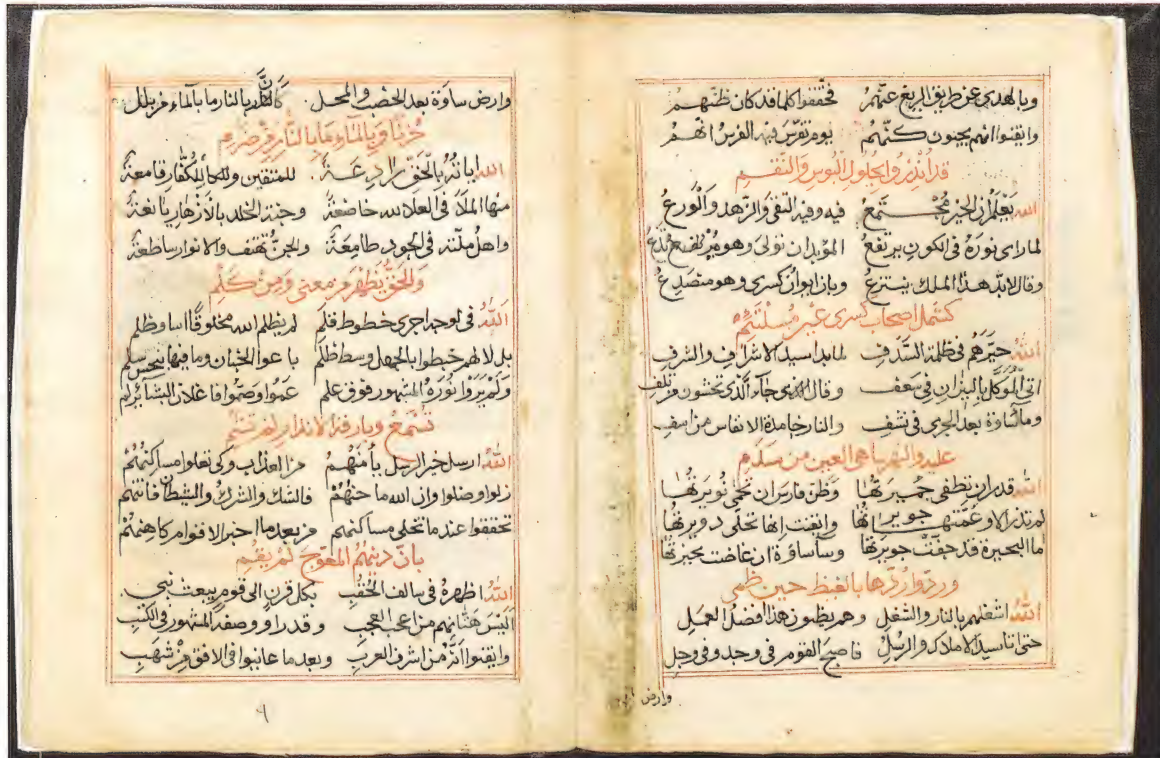 وبالهدى عن طريق الزيغ عمّهم فحققوا كلما قد كان ظنهم
وايقنوا انهم يجنون كنّهم يوم تفرّس فيه الفرس انهم
قد انذروا بحلول البؤس والنقم
الله يعلم ان الخير مجتمع فيه وفيه التقى والزهد والورع
لما راى نوره فى الكون يرتفع الموبذان تولى وهو
وقال لابد هذا الملك ينتزع وبان ايوان كسرى وهو منصدع
كشمل اصحاب كسرى غير ملتئم
الله حيّرهم فى ظلمة السدف لما بدا سيد الاشراف والشرف
اتى الموكل بالنيران فى سعف وقال الذى جاء الذى تخشون من تلف
وماء ساوة بعد الجرى فى نشف والنار خامدة الانفاس من اسف
عليه والنهر ساهى العين من سدم
الله قدر ان تطفى جميرتها وظن فارس ان تحمى نويرتها
لم تدر الا وعمتها وايقنت انها تخلى دويرتها
ما البحيرة قد جفت جويرتها وساء ساوة ان غاضت بحيرتها
وردّ واردها بالغيظ حين ظمى
الله اشغلهم بالنار والشغل وهم يظنون هذا افضل العمل
حتى اتا سيد الاملاك والرسل فاصبح القوم فى وحد وفى وجل
وارض
وارض ساوة بعد الخصب والمحل كانّ بالنار ما بالماء من بلل
حزنا وبالماء ما بالنار من ضرم
الله اياته بالحق رادعة للمتقين وللكفار قامعة
منها الملا فى العلا لله خاضعة وجنة الخلد بالازهار يانعة
واهل ملته فى الجود طامعة والجن تهتف والانوار ساطعة
والحق يظهر من معنى ومن كلم
الله فى لوحه اجرى خطوط قلم لم يظلم الله مخلوقا اسا وظلم
بل لالهم خبطوا بالجهل وسط ظلم باعوا الجنان وما فيها ببخس سلم
ولم يروا نوره المشهور فوق علم عموا وصموا فاعلان البشائر لم
تسمع وبارقة الانذار لم تشم
الله ارسل خير الرسل يأمنهم من العذاب وكى تعلوا مساكنهم
زلوا وضلوا وان الله ما حنهم فالشك والشرك والشيطان فاتنهم
تحققوا عند ما تخلى مساكنهم من بعد ما اخبر الاقوام كاهنهم
بان دينهم المعوج لم يقم
الله اظهره فى سالف الحقب بكل قرن الى قوم يبعث نبى
اليس هتانهم من اعجب العجب وقد راو وصفه المشهور فى الكتب
وايقنوا انه من اشرف العرب وبعد ما عاينوا فى الافق من شهب
٩